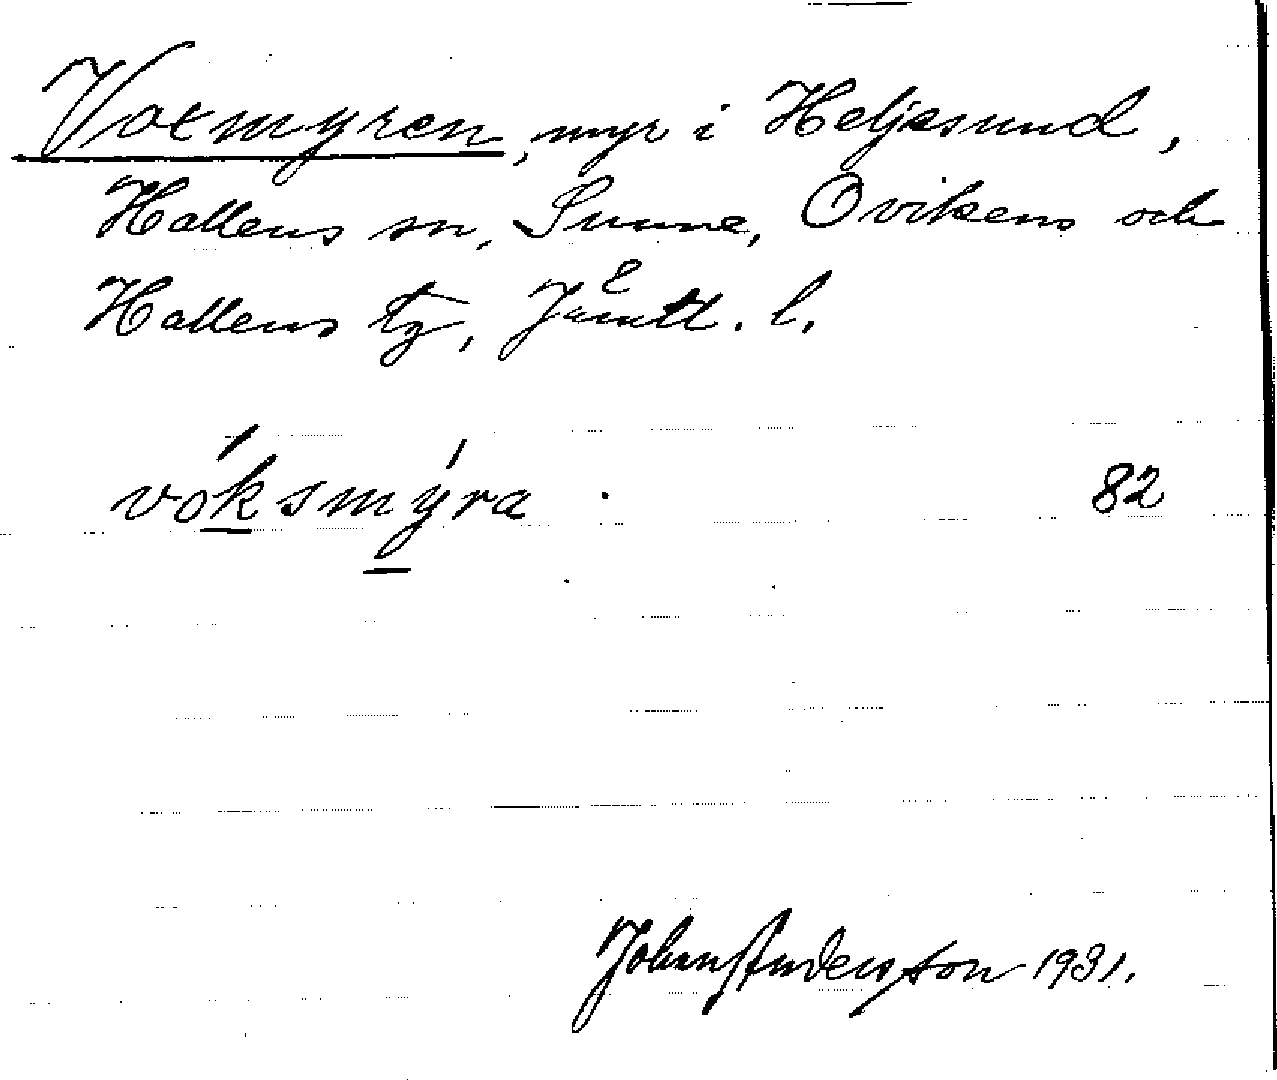 Voxmyren, myr i Heljesund,
Hallens sn, Sunne, Ovikens och
Hallens tg, Jämtl. l.
vóksmýra . 82
Johan Andersson 1931.